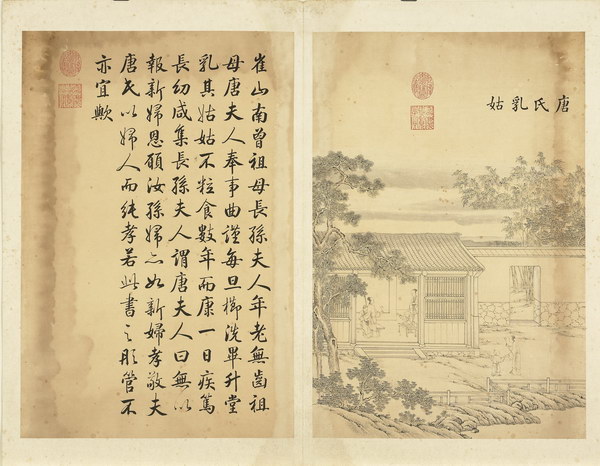 唐氏乳姑
崔山南曾祖母長孫夫人年老無齒祖
母唐夫人奉事曲謹每旦櫛洗畢升堂
乳其姑姑不粒食數年而康一日疾篤
長幼咸集長孫夫人謂唐夫人曰無以
報新婦恩願汝孫婦亦如新婦孝敬夫
唐氏以婦人而純孝若此書之彤管不
亦宜歟